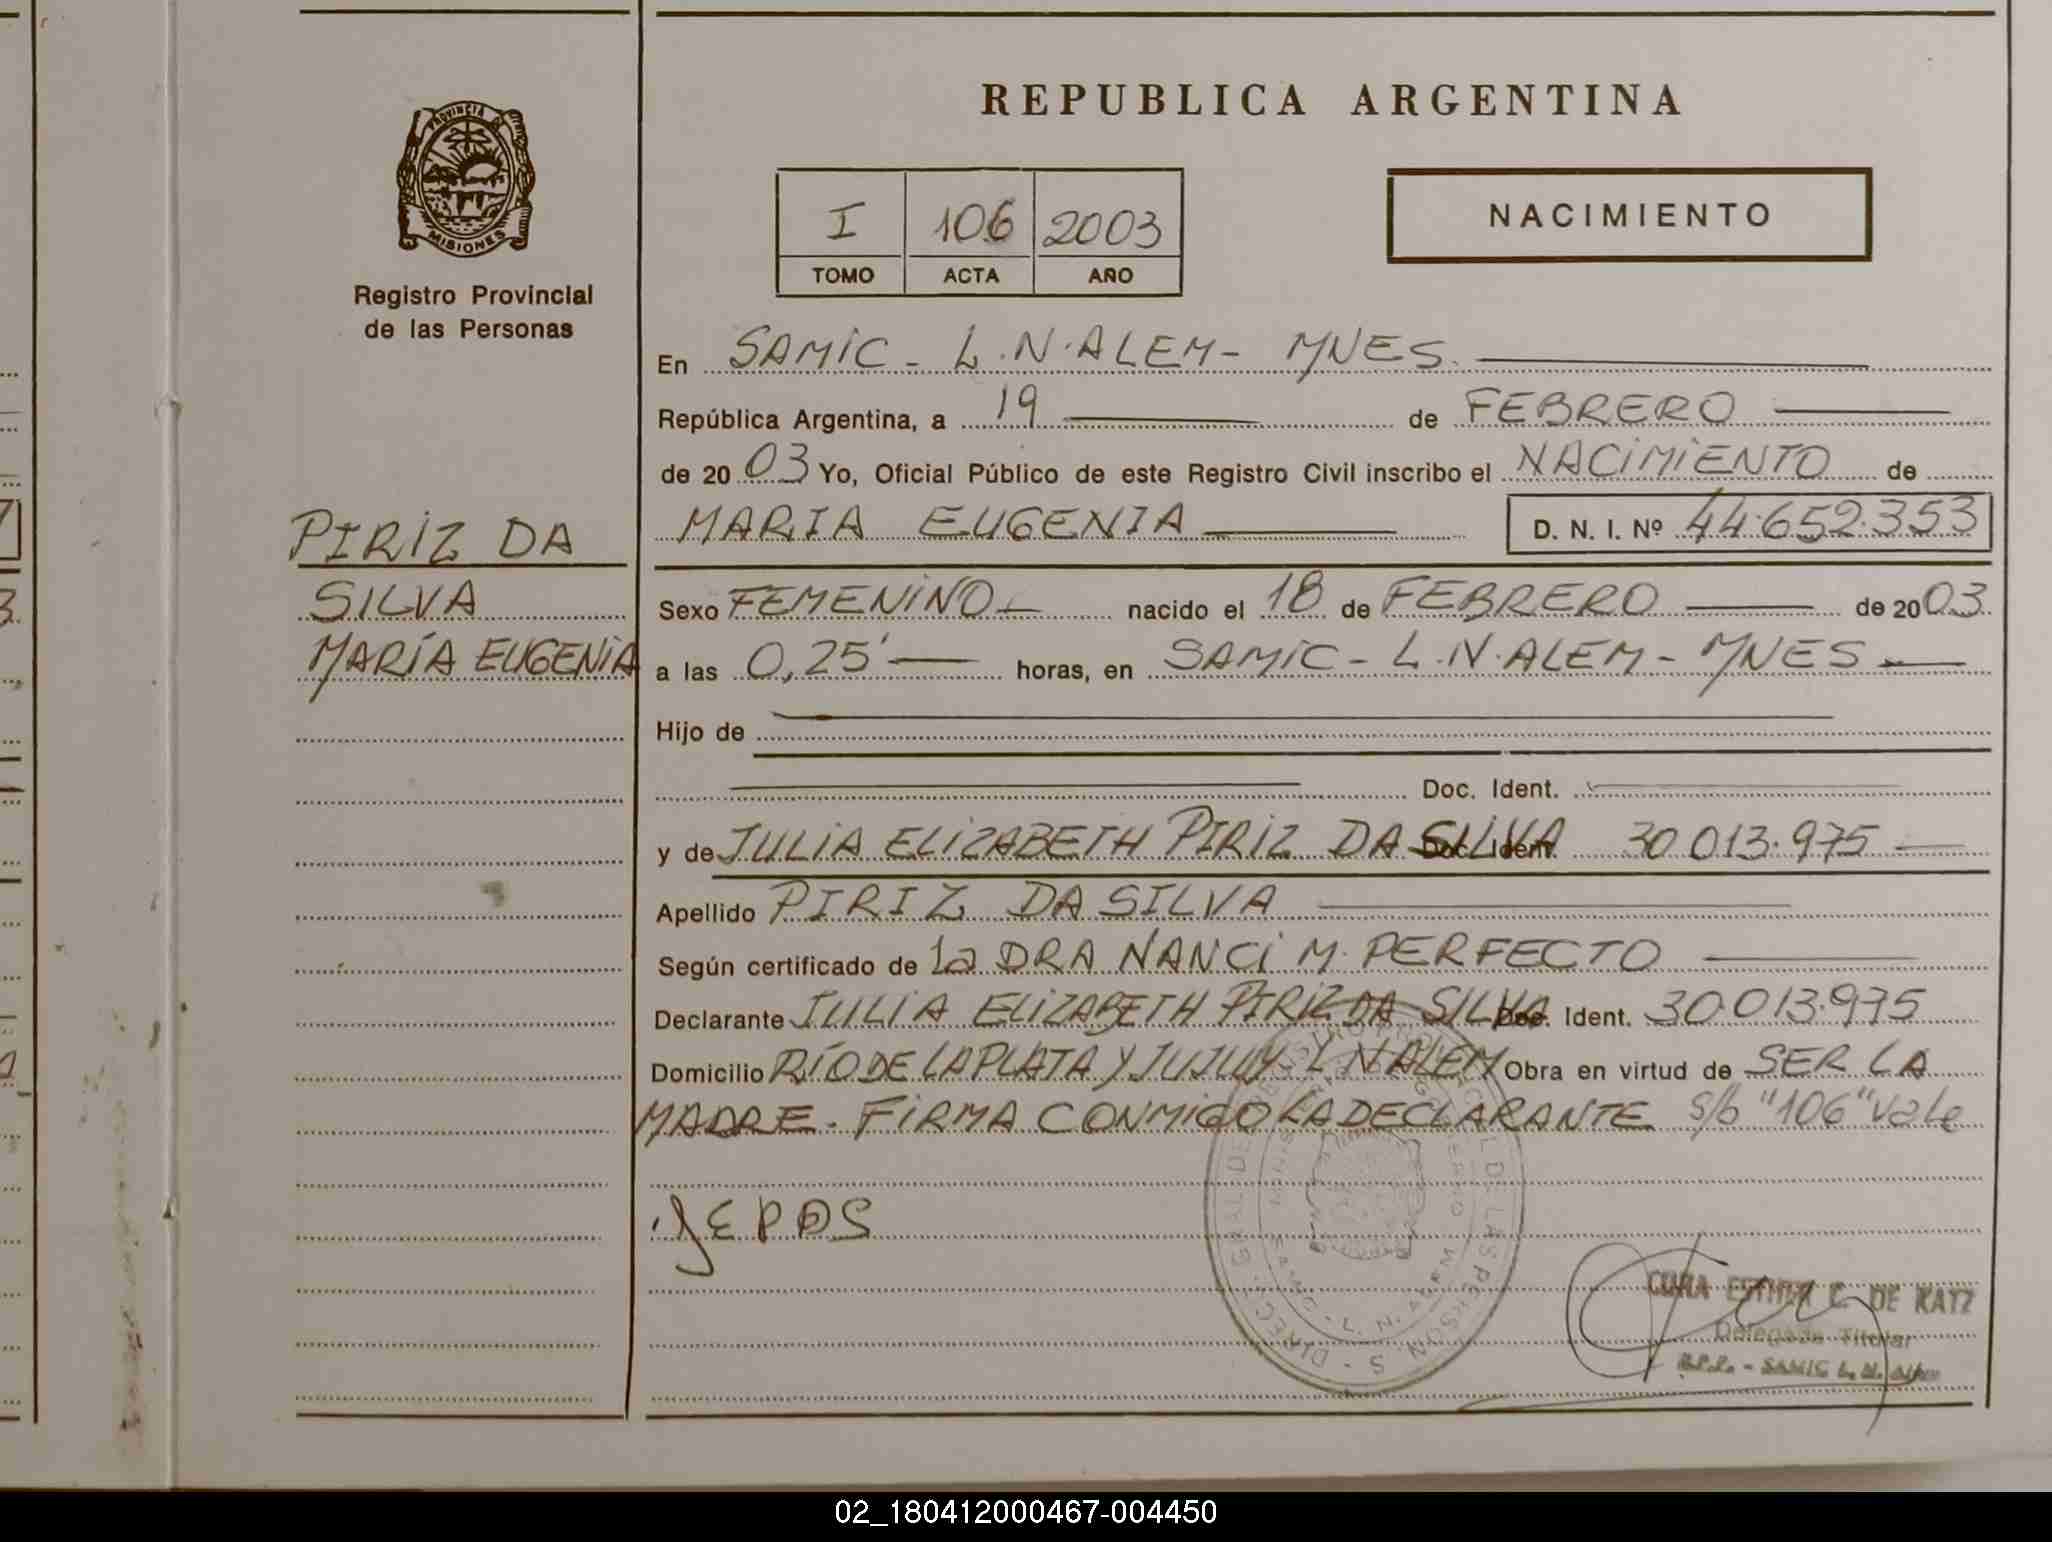 REPUBLICA ARGENTINA
PROVINCIA DE
MISIONES
Registro Provincial
de las Personas
I 106 2003
TOMO ACTA AÑO
NACIMIENTO
En SAMIC - L.N.ALEM - MNES.
República Argentina, a 19 de FEBRERO
de 20 03 Yo, Oficial Público de este Registro Civil inscribo el NACIMIENTO de
MARIA EUGENIA D. N. I. Nº 44.652.353
PIRIZ DA
SILVA
MARÍA EUGENIA
Sexo FEMENINO nacido el 18 de FEBRERO de 20 03
a las 0,25' horas, en SAMIC - L.N.ALEM - MNES
Hijo de
Doc. Ident.
y de JULIA ELIZABETH PIRIZ DA SILVA Doc. Ident. 30.013.975
Apellido PIRIZ DA SILVA
Según certificado de la DRA NANCI M. PERFECTO
Declarante JULIA ELIZABETH PIRIZ DA SILVA Doc. Ident. 30.013.975
Domicilio RÍO DE LA PLATA Y JUJUY - L N ALEM Obra en virtud de SER LA
MADRE. FIRMA CONMIGO LA DECLARANTE s/b "106" vale
JEPDS
ESTHER C. DE KATZ
Delegada Titular
R.P.P. - SAMIC L. N. Alem
DIREC. GRAL. DE REGISTRO PROVINCIAL DE LAS PERSONAS
SAMIC - L. N. ALEM
02_180412000467-004450